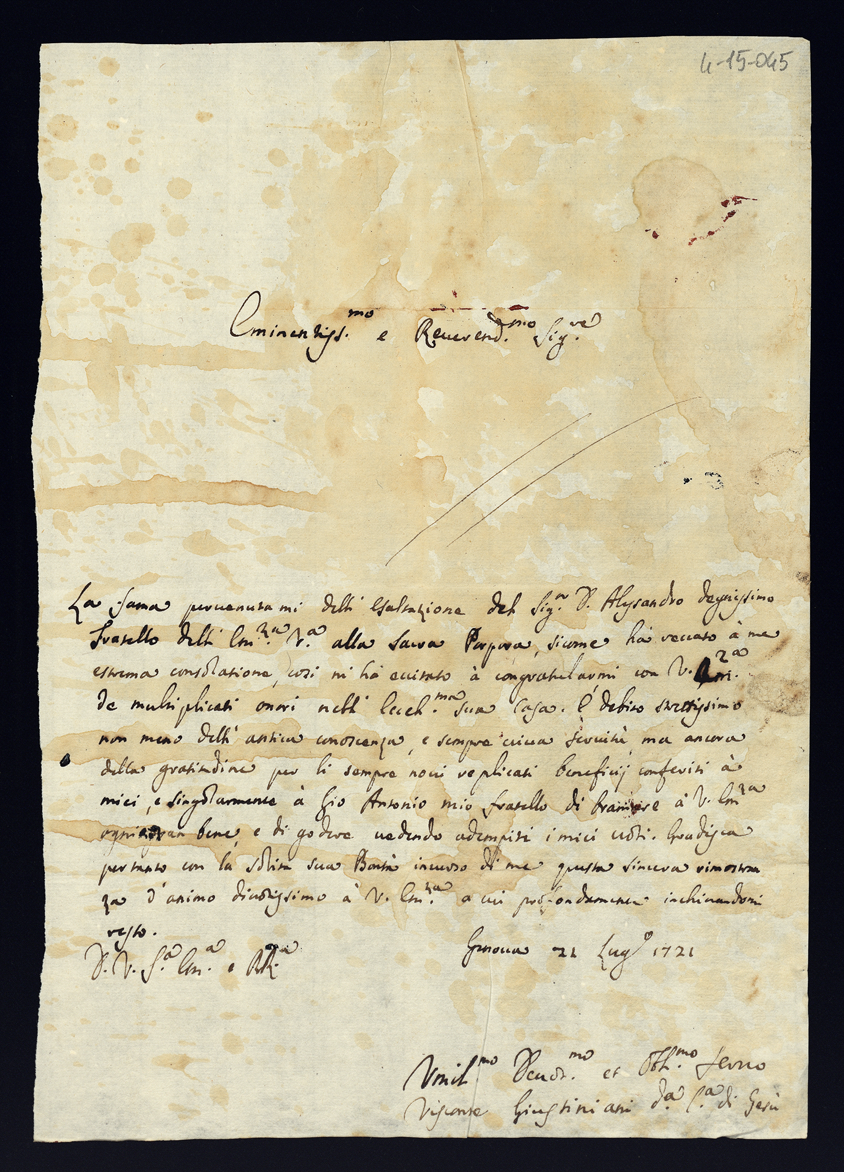 4-15-045
Eminentiss.mo e Reverend.mo Sig.re
La fama pervenutami dell' esaltazione del Sig.r D. Alesandro degnissimo
fratello dell' Em.za V.a alla Sacra Porpora, sicome hà reccato à me
estrema consolatione, cosi mi hà eccitato à congratularmi con V. Em.za
de multiplicati onori nell' Eccell.ma sua Casa. È debito strettissimo
non meno dell' antica conoscenza, e sempre servitù, ma ancora
della gratitudine per li sempre novi replicati beneficij conferiti à
miei, e singolarmente à Gio Antonio mio fratello di bramare à V. Em.za
ogni gran bene, e di godere vedendo adempiti i miei voti. Gradisca
pertanto con la solita sua Bontà inverso di me questa sincera rimostran
za d'animo divotissimo à V. Em.za a cui profondamente inchinandomi
resto.
D. V. S.a Em.a e R.a
Genova 21 Lug.o 1721
Umil.mo Devot.mo et Obb.mo Servo
Visconte Giustiniani d.a C.a di Gesù